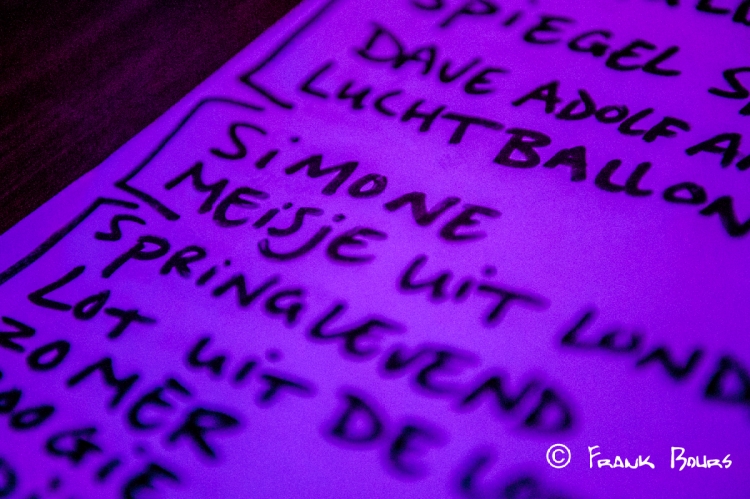 SPIEGEL
DAVE ADOLF
LUCHTBALLON
SIMONE
MEISJE UIT LOND
SPRINGLEVEND
LOT UIT DE LO
ZOMER
© FRANK BOURS